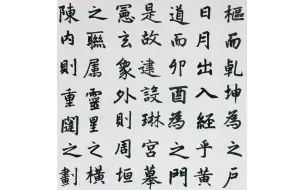 樞而乹坤為之戶
日月出入經乎黃
道而卯酉為之門
是故建設琳宮摹
憲玄象外則周垣
之聮属靈星之橫
陳内則重闥之劃